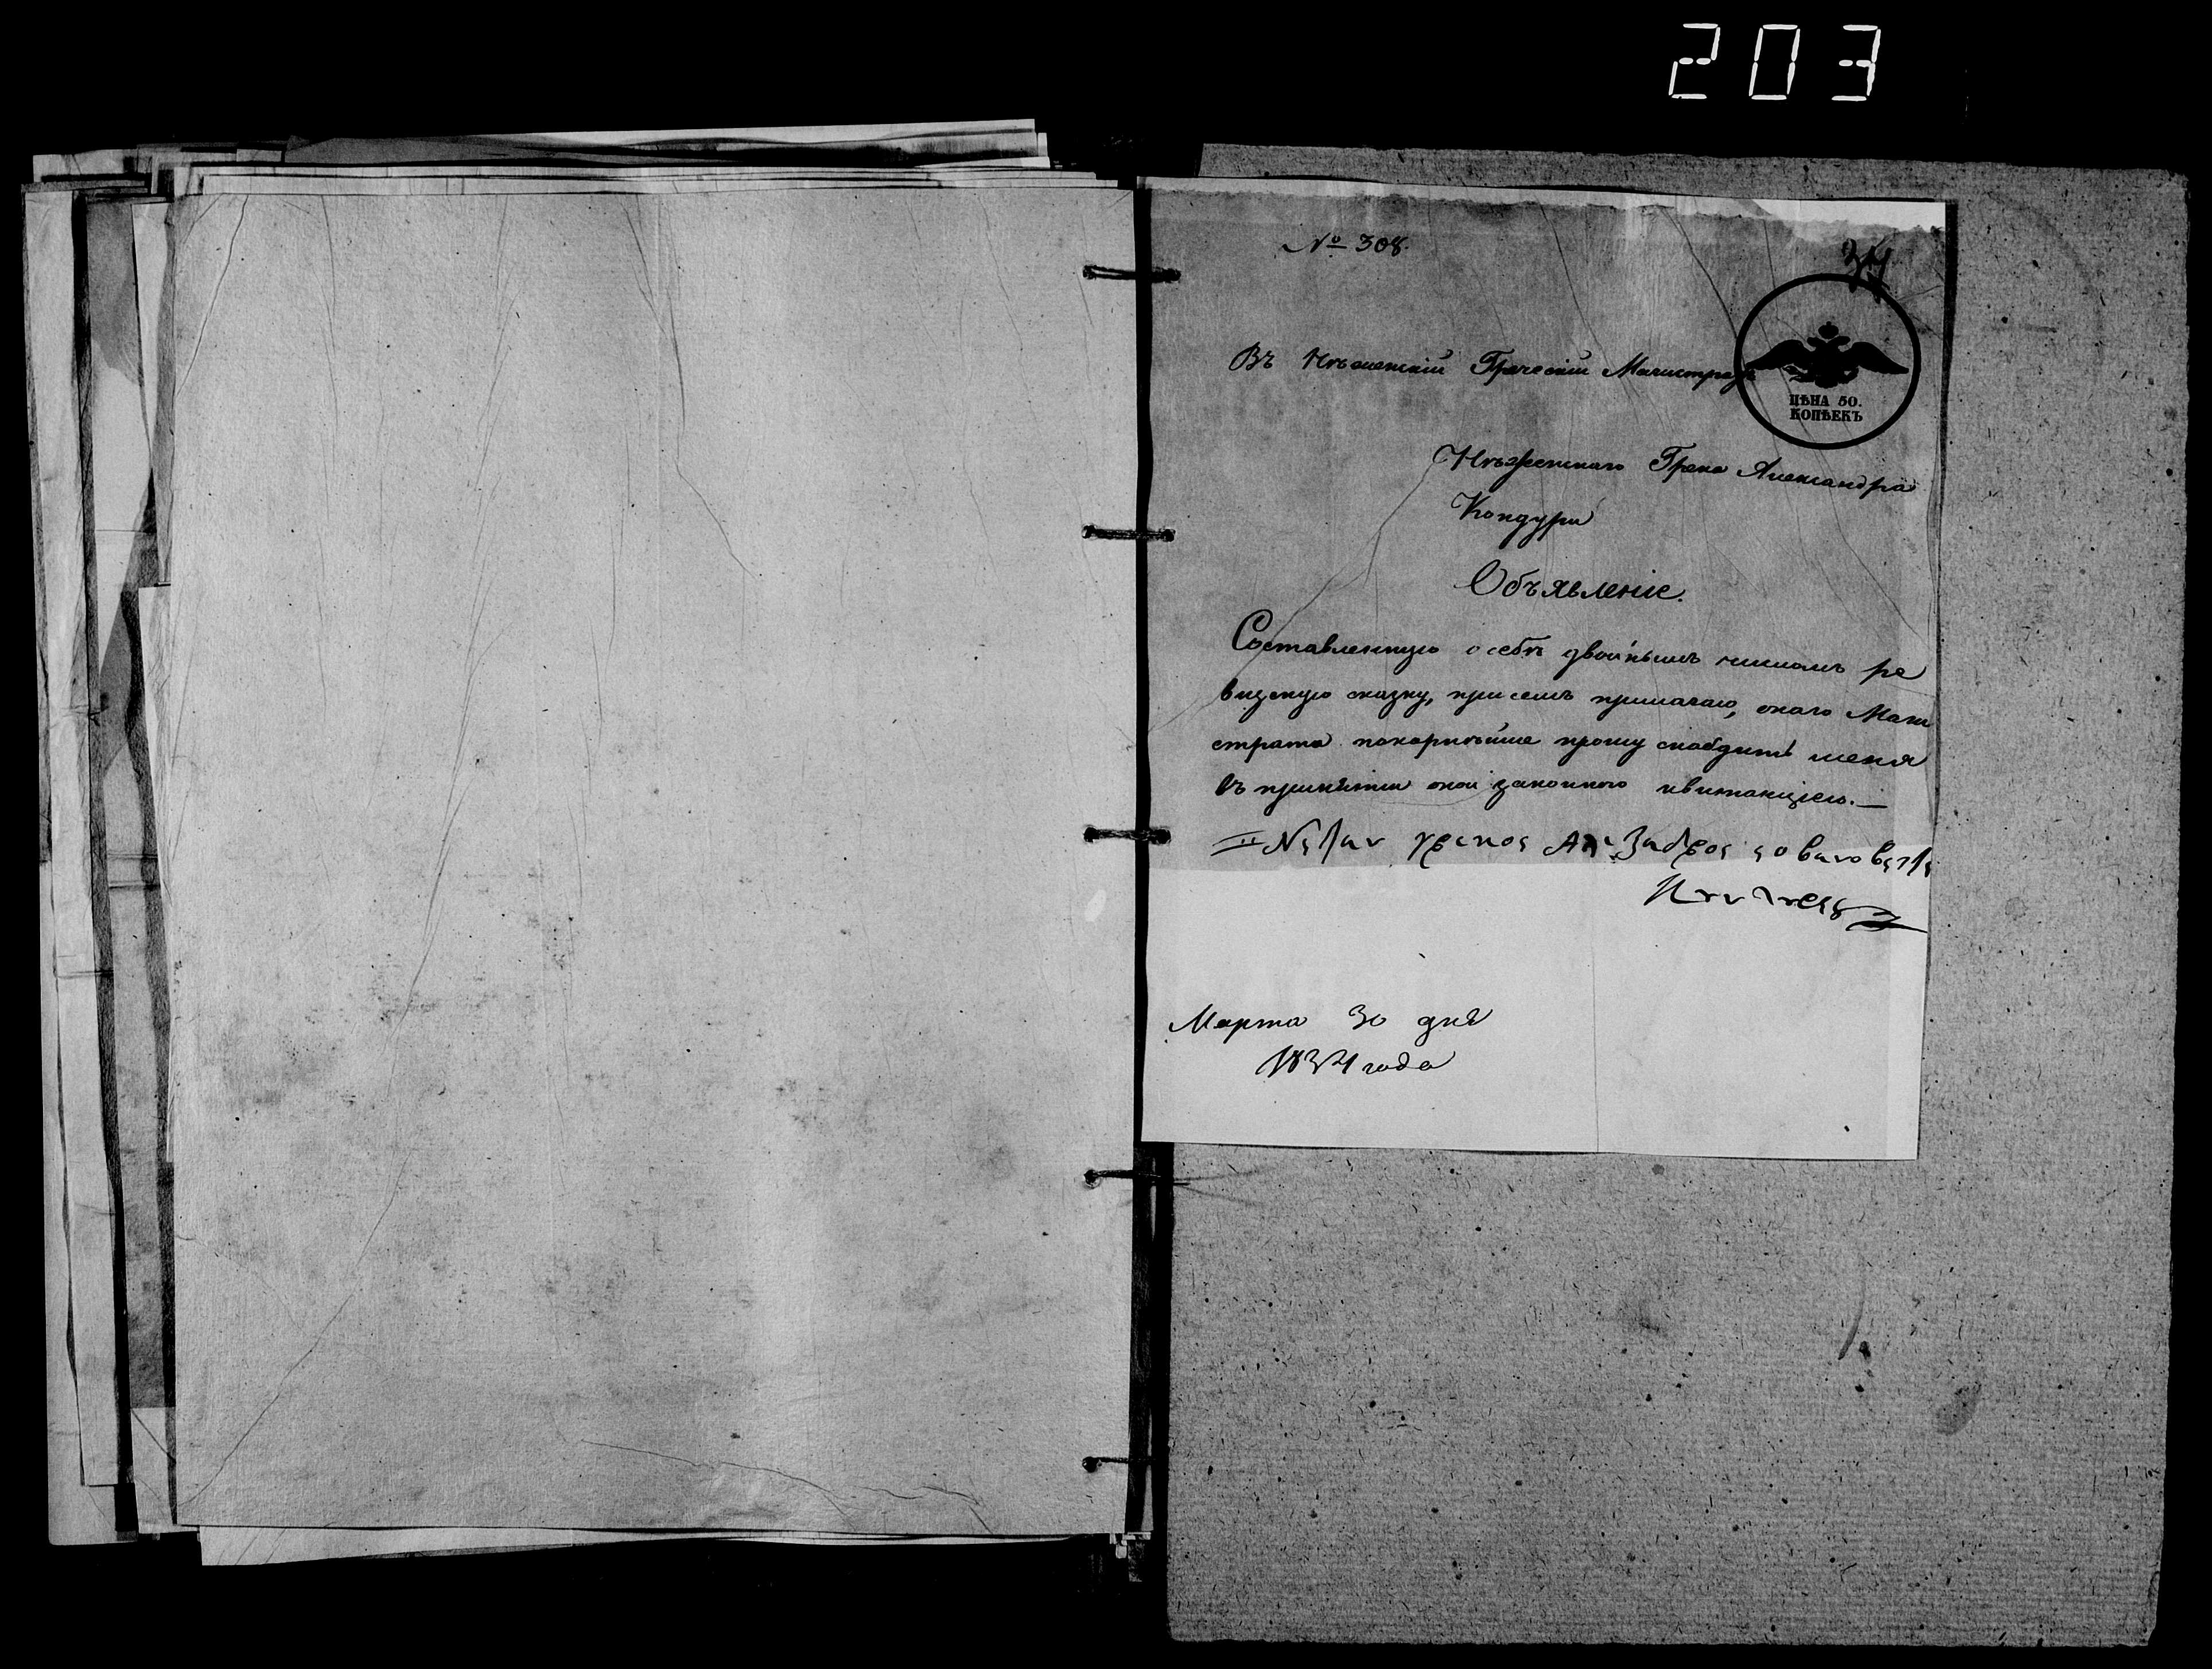 203
№ 308.
37
Въ Нѣженскій Греческій Магистратъ
ЦѢНА 50.
КОПѢЕКЪ
Нѣженскаго Грека Александра
Кондури
Объявленіе.
Составленную о себѣ двойнымъ числомъ ре
визскую сказку, при семъ прилагаю, онаго Маги
страта покорнѣйше прошу снабдить меня
въ принятіи оной законною квитанціею.—
Марта 30 дня
1834 года